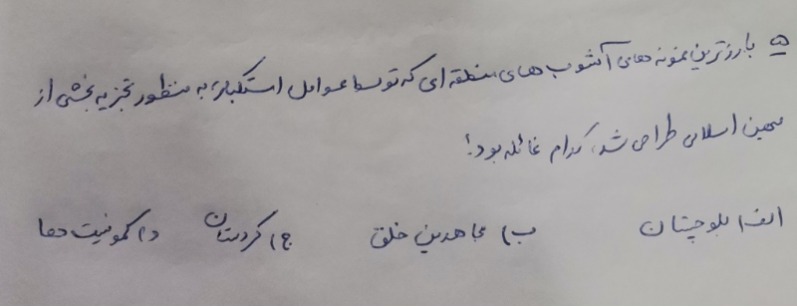 ۵ بارزترین نمونه های آشوب های منطقه ای که توسط عوامل استکبار، به منظور تجزیه بخشی از
میهن اسلامی طراحی شد، کدام غائله بود؟
الف) بلوچستان ب) مجاهدین خلق ج) کردستان د) کمونیست ها